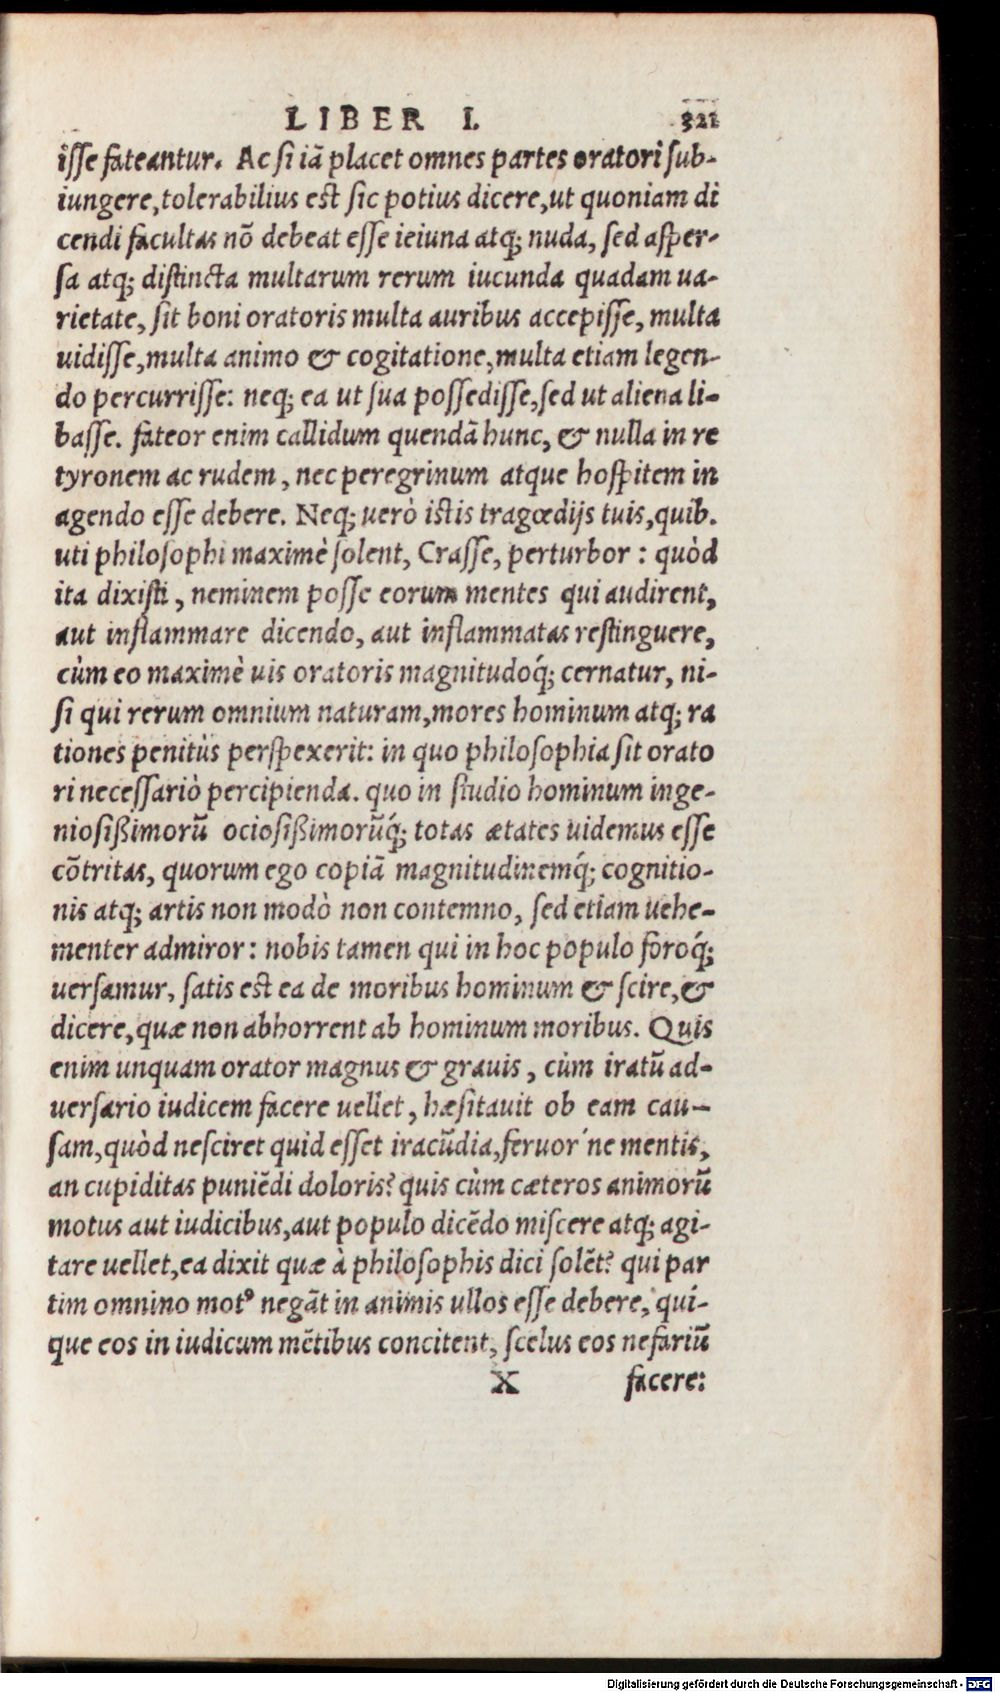 LIBER I. 321
isse fateantur. Ac si iã placet omnes partes oratori sub-
iungere, tolerabilius est sic potius dicere, ut quoniam di
cendi facultas nõ debeat esse ieiuna atq; nuda, sed asper-
sa atq; distincta multarum rerum iucunda quadam ua-
rietate, sit boni oratoris multa auribus accepisse, multa
uidisse, multa animo & cogitatione, multa etiam legen-
do percurrisse: neq; ea ut sua possedisse, sed ut aliena li-
basse. fateor enim callidum quendã hunc, & nulla in re
tyronem ac rudem, nec peregrinum atque hospitem in
agendo esse debere. Neq; uerò istis tragœdijs tuis, quib.
uti philosophi maximè solent, Crasse, perturbor: quòd
ita dixisti, neminem posse eorum mentes qui audirent,
aut inflammare dicendo, aut inflammatas restinguere,
cùm eo maximè uis oratoris magnitudoq́; cernatur, ni-
si qui rerum omnium naturam, mores hominum atq; ra
tiones penitùs perspexerit: in quo philosophia sit orato
ri necessariò percipienda. quo in studio hominum inge-
niosißimorũ ociosißimorũq́; totas ætates uidemus esse
cõtritas, quorum ego copiã magnitudinemq́; cognitio-
nis atq; artis non modò non contemno, sed etiam uehe-
menter admiror: nobis tamen qui in hoc populo foroq́;
uersamur, satis est ea de moribus hominum & scire, &
dicere, quæ non abhorrent ab hominum moribus. Quis
enim unquam orator magnus & grauis, cùm iratũ ad-
uersario iudicem facere uellet, hæsitauit ob eam cau-
sam, quòd nesciret quid esset iracũdia, feruor´ne mentis,
an cupiditas puniẽdi doloris? quis cùm cæteros animorũ
motus aut iudicibus, aut populo dicẽdo miscere atq; agi-
tare uellet, ea dixit quæ à philosophis dici solẽt? qui par
tim omnino motꝰ negãt in animis ullos esse debere, quí-
que eos in iudicum mẽtibus concitent, scelus eos nefariũ
X facere:
Digitalisierung gefördert durch die Deutsche Forschungsgemeinschaft - DFG